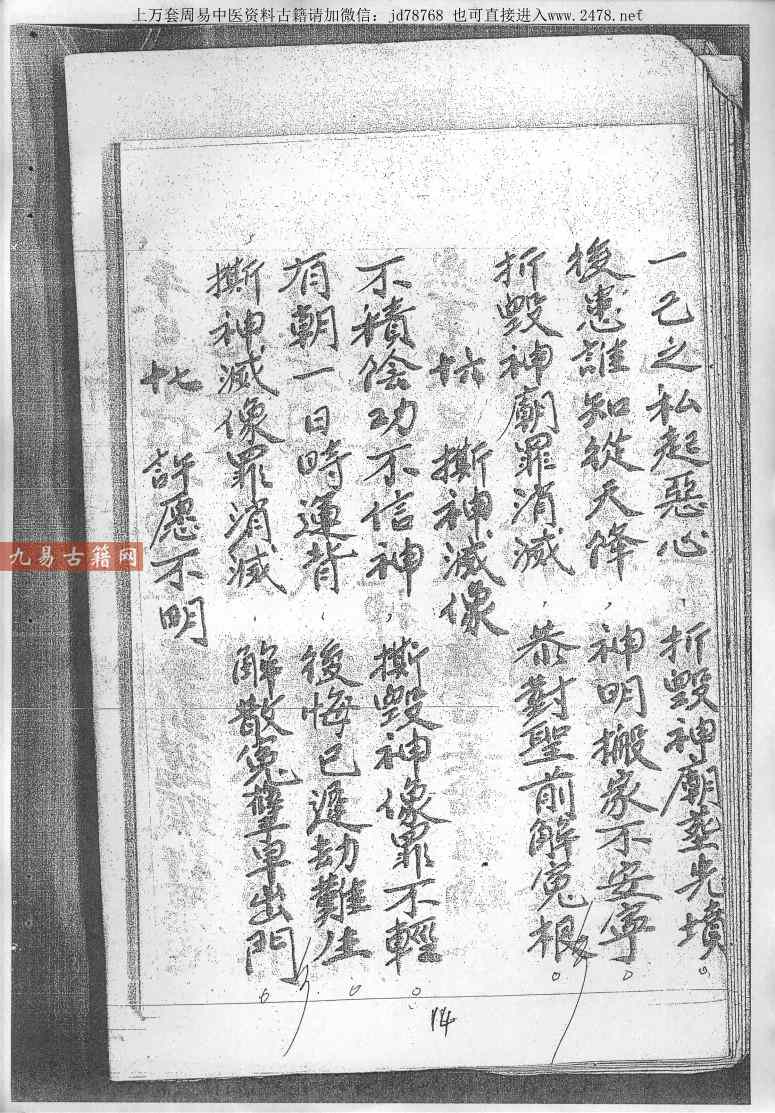 上万套周易中医资料古籍请加微信：jd78768 也可直接进入www.2478.net
一己之私起惡心，折毁神廟塟先墳。
後患誰知從天降，神明搬家不安寧。
折毁神廟罪消滅，恭對聖前解冤根。
十六 撕神滅像
不積陰功不信神，撕毁神像罪不輕。
有朝一日時運背，後悔已遲劫難生。
撕神滅像罪消滅，解散冤孽早出門。
十七 許愿不明
九易古籍网
14